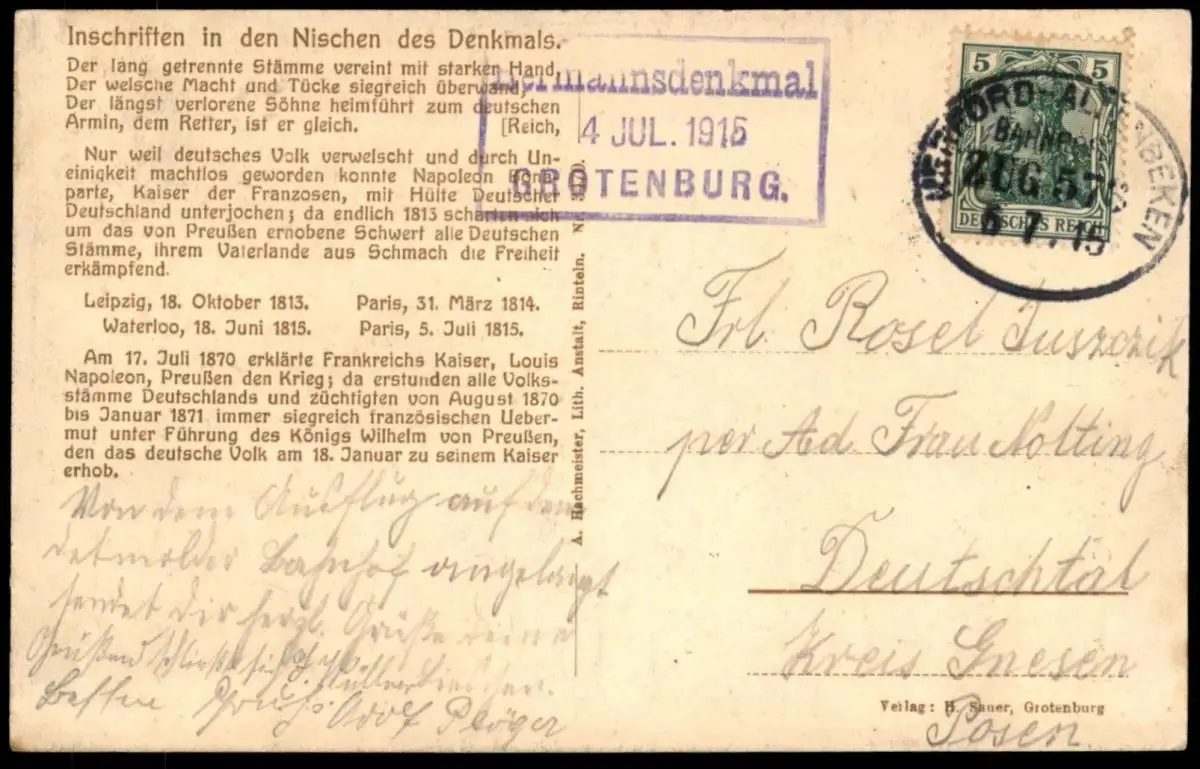 Inschriften in den Nischen des Denkmals.
Der lang getrennte Stämme vereint mit starken Hand,
Der welsche Macht und Tücke siegreich überwand,
Der längst verlorene Söhne heimführt zum deutschen
Armin, dem Retter, ist er gleich. [Reich,
Nur weil deutsches Volk verwelscht und durch Un-
einigkeit machtlos geworden konnte Napoleon Bona-
parte, Kaiser der Franzosen, mit Hülfe Deutscher
Deutschland unterjochen; da endlich 1813 scharten sich
um das von Preußen erhobene Schwert alle Deutschen
Stämme, ihrem Vaterlande aus Schmach die Freiheit
erkämpfend.
Leipzig, 18. Oktober 1813. Paris, 31. März 1814.
Waterloo, 18. Juni 1815. Paris, 5. Juli 1815.
Am 17. Juli 1870 erklärte Frankreichs Kaiser, Louis
Napoleon, Preußen den Krieg; da erstunden alle Volks-
stämme Deutschlands und züchtigten von August 1870
bis Januar 1871 immer siegreich französischen Ueber-
mut unter Führung des Königs Wilhelm von Preußen,
den das deutsche Volk am 18. Januar zu seinem Kaiser
erhob.
Von dem Ausflug auf dem
detmolder Bahnhof angelangt
sendet dir herzl. Grüße deine
Besten Gruß Adolf Plöger
A. Hachmeister, Lith. Anstalt, Rinteln.
Hermannsdenkmal
4 JUL. 1915
GROTENBURG.
5 5
DEUTSCHES REICH
HERFORD-ALTENBEKEN
BAHNPOST
ZUG 57
6 7. 15
Frl. Rosel Juszczik
per Ad Frau Nolting
Deutschtal
Kreis Gnesen
Posen
Verlag: H. Sauer, Grotenburg